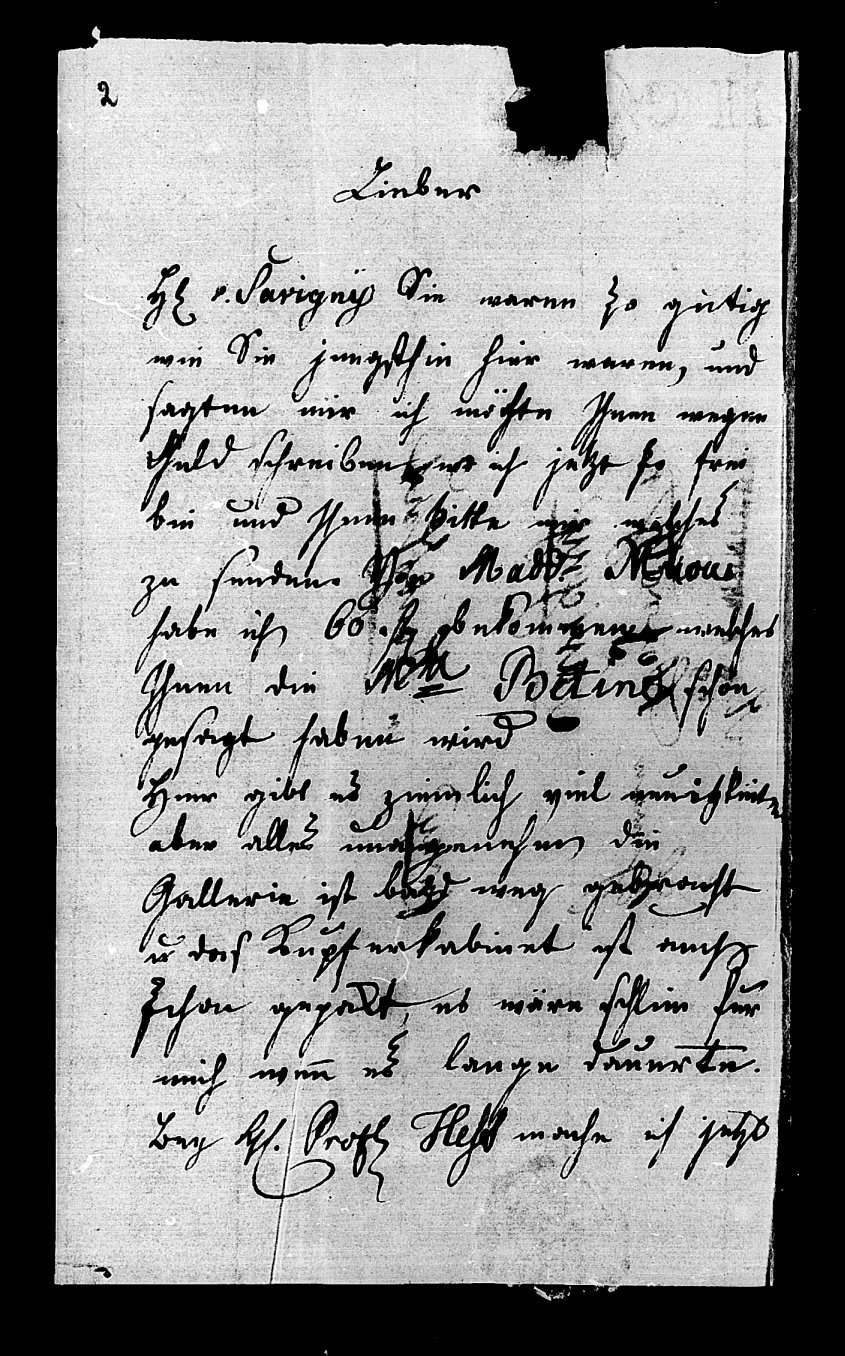 2
Lieber
H. v. Savigny Sie waren so gutig
wie Sie jungsthin hier waren, und
sagten mir ich möchte Ihnen wegen
Geld schreiben, ich jetzt so frei
bin und Ihnen bitte mir welches
zu senden. Von Madd.
habe ich 60 f. bekommen welches
Ihnen die Mlle Betine schon
gesagt haben wird
Hier gibt es ziemlich viel neuigkeiten
aber alles unangenehm die
Gallerie ist bald weg gebracht
u das Kupferkabinet ist auch
schon gepakt, es wäre schlim fur
mich wenn es lange dauerte.
Bey H. Profs Hess mache ich jetzt